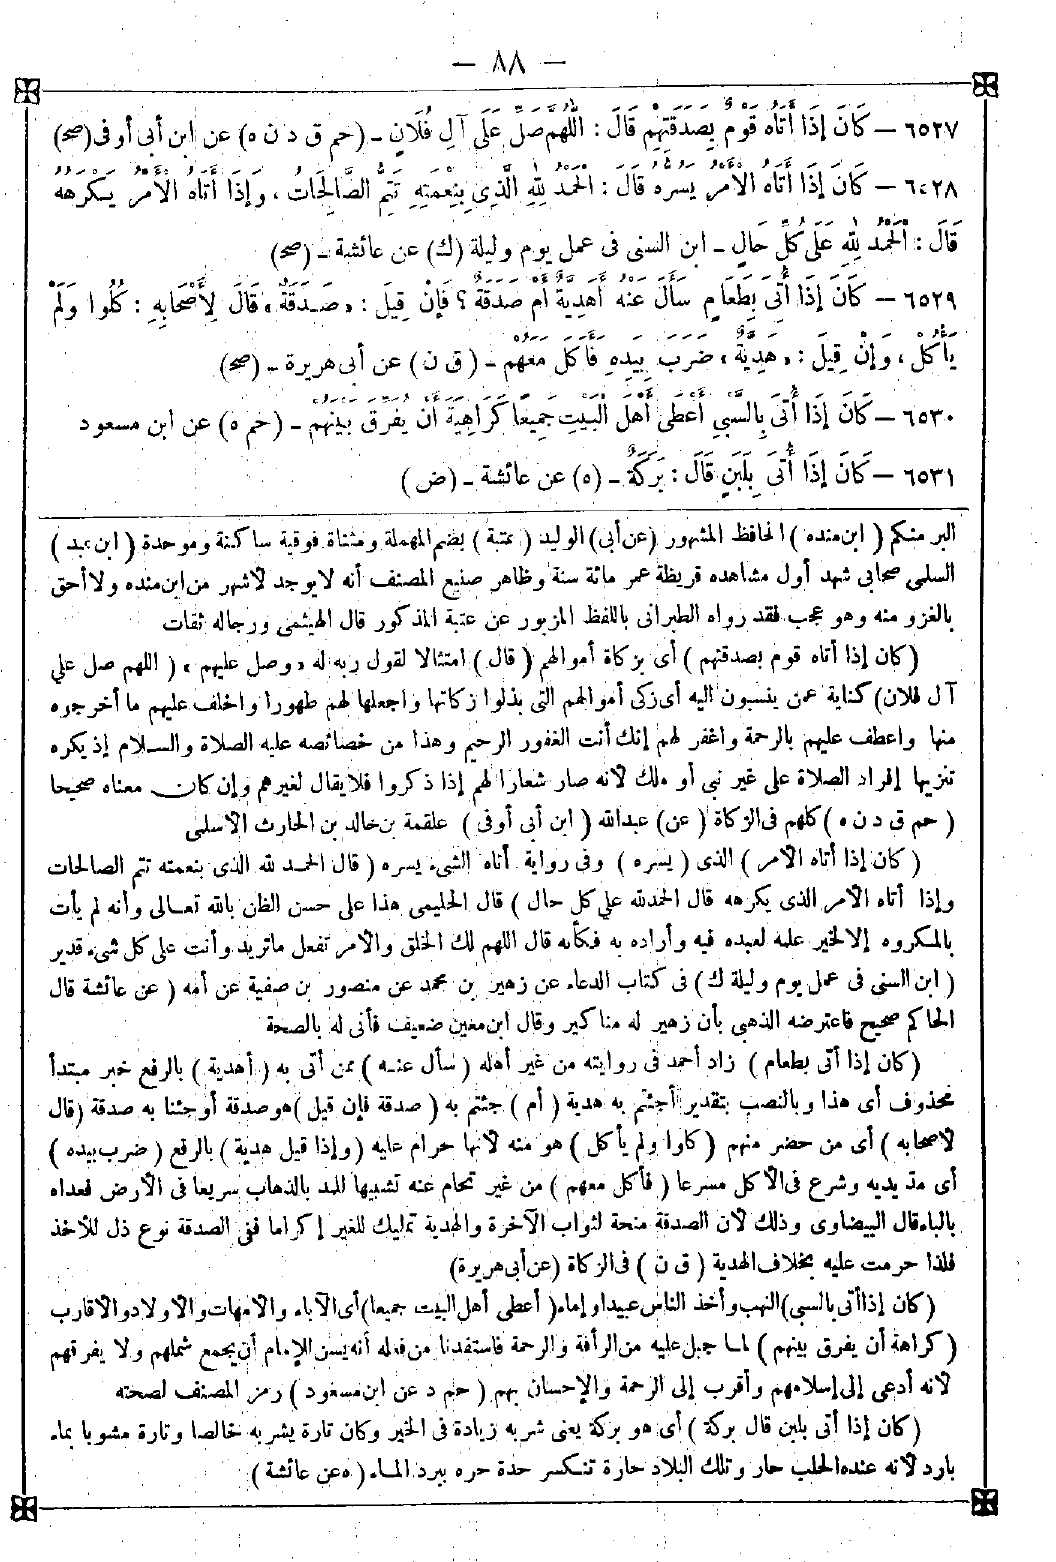 — ٨٨ —
٦٥٢٧ — كَانَ إذَا أَتَاهُ قَوْمٌ بِصَدَقَتِهِمْ قَالَ : اللّٰهُمَّ صَلِّ عَلَى آلِ فُلَانٍ ـ (حم ق د ن ه) عن ابن أبى أوفى (صح)
٦٥٢٨ — كَانَ إذَا أَتَاهُ الْأَمْرُ يَسُرُّهُ قَالَ : الْحَمْدُ لِلهِ الَّذِي بِنِعْمَتِهِ تَتِمُّ الصَّالِحَاتُ ، وَإِذَا أَتَاهُ الْأَمْرُ يَكْرَهُهُ
قَالَ : الْحَمْدُ لِلهِ عَلَى كُلِّ حَالٍ ـ ابن السنى فى عمل يوم وليلة (ك) عن عائشة ـ (صح)
٦٥٢٩ — كَانَ إذَا أُتِىَ بِطَعَامٍ سَأَلَ عَنْهُ أَهَدِيَّةٌ أَمْ صَدَقَةٌ ؟ فَإِنْ قِيلَ : «صَدَقَةٌ» قَالَ لِأَصْحَابِهِ : كُلُوا وَلَمْ
يَأْكُلْ ، وَإِنْ قِيلَ : «هَدِيَّةٌ» ضَرَبَ بِيَدِهِ فَأَكَلَ مَعَهُمْ ـ (ق ن) عن أبى هريرة ـ (صح)
٦٥٣٠ — كَانَ إذَا أُتِىَ بِالسَّبْيِ أَعْطَى أَهْلَ الْبَيْتِ جَمِيعًا كَرَاهِيَةَ أَنْ يُفَرِّقَ بَيْنَهُمْ ـ (حم ه) عن ابن مسعود
٦٥٣١ — كَانَ إذَا أُتِىَ بِلَبَنٍ قَالَ : بَرَكَةٌ ـ (ه) عن عائشة ـ (ض)
البر منكم (ابن منده) الحافظ المشهور (عن أبى) الوليد (عتبة) بضم المهملة ومثناة فوقية ساكنة وموحدة (ابن عبد)
السلمى صحابى شهد أول مشاهده قريظة عمر مائة سنة وظاهر صنيع المصنف أنه لا يوجد لأشهر من ابن منده ولا أحق
بالعزو منه وهو عجب فقد رواه الطبرانى باللفظ المزبور عن عتبة المذكور قال الهيثمى ورجاله ثقات
(كان إذا أتاه قوم بصدقتهم) أى بزكاة أموالهم (قال) امتثالا لقول ربه له «وصل عليهم» (اللهم صل على
آل فلان) كناية عمن ينسبون اليه أى زكى أموالهم التى بذلوا زكاتها واجعلها لهم طهورا واخلف عليهم ما أخرجوه
منها واعطف عليهم بالرحمة واغفر لهم إنك أنت الغفور الرحيم وهذا من خصائصه عليه الصلاة والسلام إذ يكره
تنزيها إفراد الصلاة على غير نبى أو ملك لأنه صار شعارا لهم إذا ذكروا فلا يقال لغيرهم وإن كان معناه صحيحا
(حم ق د ن ه) كلهم فى الزكاة (عن) عبدالله (ابن أبى أوفى) علقمة بن خالد بن الحارث الأسلمى
(كان إذا أتاه الأمر) الذى (يسره) وفى رواية أتاه الشىء يسره (قال الحمد لله الذى بنعمته تتم الصالحات
وإذا أتاه الأمر الذى يكرهه قال الحمد لله على كل حال) قال الحليمى هذا على حسن الظن بالله تعالى وأنه لم يأت
بالمكروه إلا لخير علمه لعبده فيه وأراده به فكأنه قال اللهم لك الخلق والأمر تفعل ما تريد وأنت على كل شىء قدير
(ابن السنى فى عمل يوم وليلة ك) فى كتاب الدعاء عن زهير بن محمد عن منصور بن صفية عن أمه (عن عائشة قال
الحاكم صحيح فاعترضه الذهبى بأن زهير له مناكير وقال ابن معين ضعيف فأنى له بالصحة
(كان إذا أتى بطعام) زاد أحمد فى روايته من غير أهله (سأل عنه) ممن أتى به (أهدية) بالرفع خبر مبتدأ
محذوف أى هذا وبالنصب بتقدير أجئتم به هدية (أم) جئتم به (صدقة فإن قيل) هو صدقة أو جئنا به صدقة (قال
لأصحابه) أى من حضر منهم (كلوا ولم يأكل) هو منه لأنها حرام عليه (وإذا قيل هدية) بالرفع (ضرب بيده)
أى مد يديه وشرع فى الأكل مسرعا (فأكل معهم) من غير تحام عنه تشبيها للمد بالذهاب سريعا فى الأرض فعداه
بالباء قال البيضاوى وذلك لأن الصدقة منحة لثواب الآخرة والهدية تمليك للغير إكراما ففى الصدقة نوع ذل للآخذ
فلذا حرمت عليه بخلاف الهدية (ق ن) فى الزكاة (عن أبى هريرة)
(كان إذا أتى بالسبى) النهب وأخذ الناس عبيدا وإماء (أعطى أهل البيت جميعا) أى الآباء والأمهات والأولاد والأقارب
(كراهة أن يفرق بينهم) لما جبل عليه من الرأفة والرحمة فاستفدنا من فعله أنه يسن للإمام أن يجمع شملهم ولا يفرقهم
لأنه أدعى إلى إسلامهم وأقرب إلى الرحمة والإحسان بهم (حم د عن ابن مسعود) رمز المصنف لصحته
(كان إذا أتى بلبن قال بركة) أى هو بركة يعنى شربه زيادة فى الخير وكان تارة يشربه خالصا وتارة مشوبا بماء
بارد لأنه عند الحلب حار وتلك البلاد حارة تنكسر حدة حره ببرد الماء (ه عن عائشة)